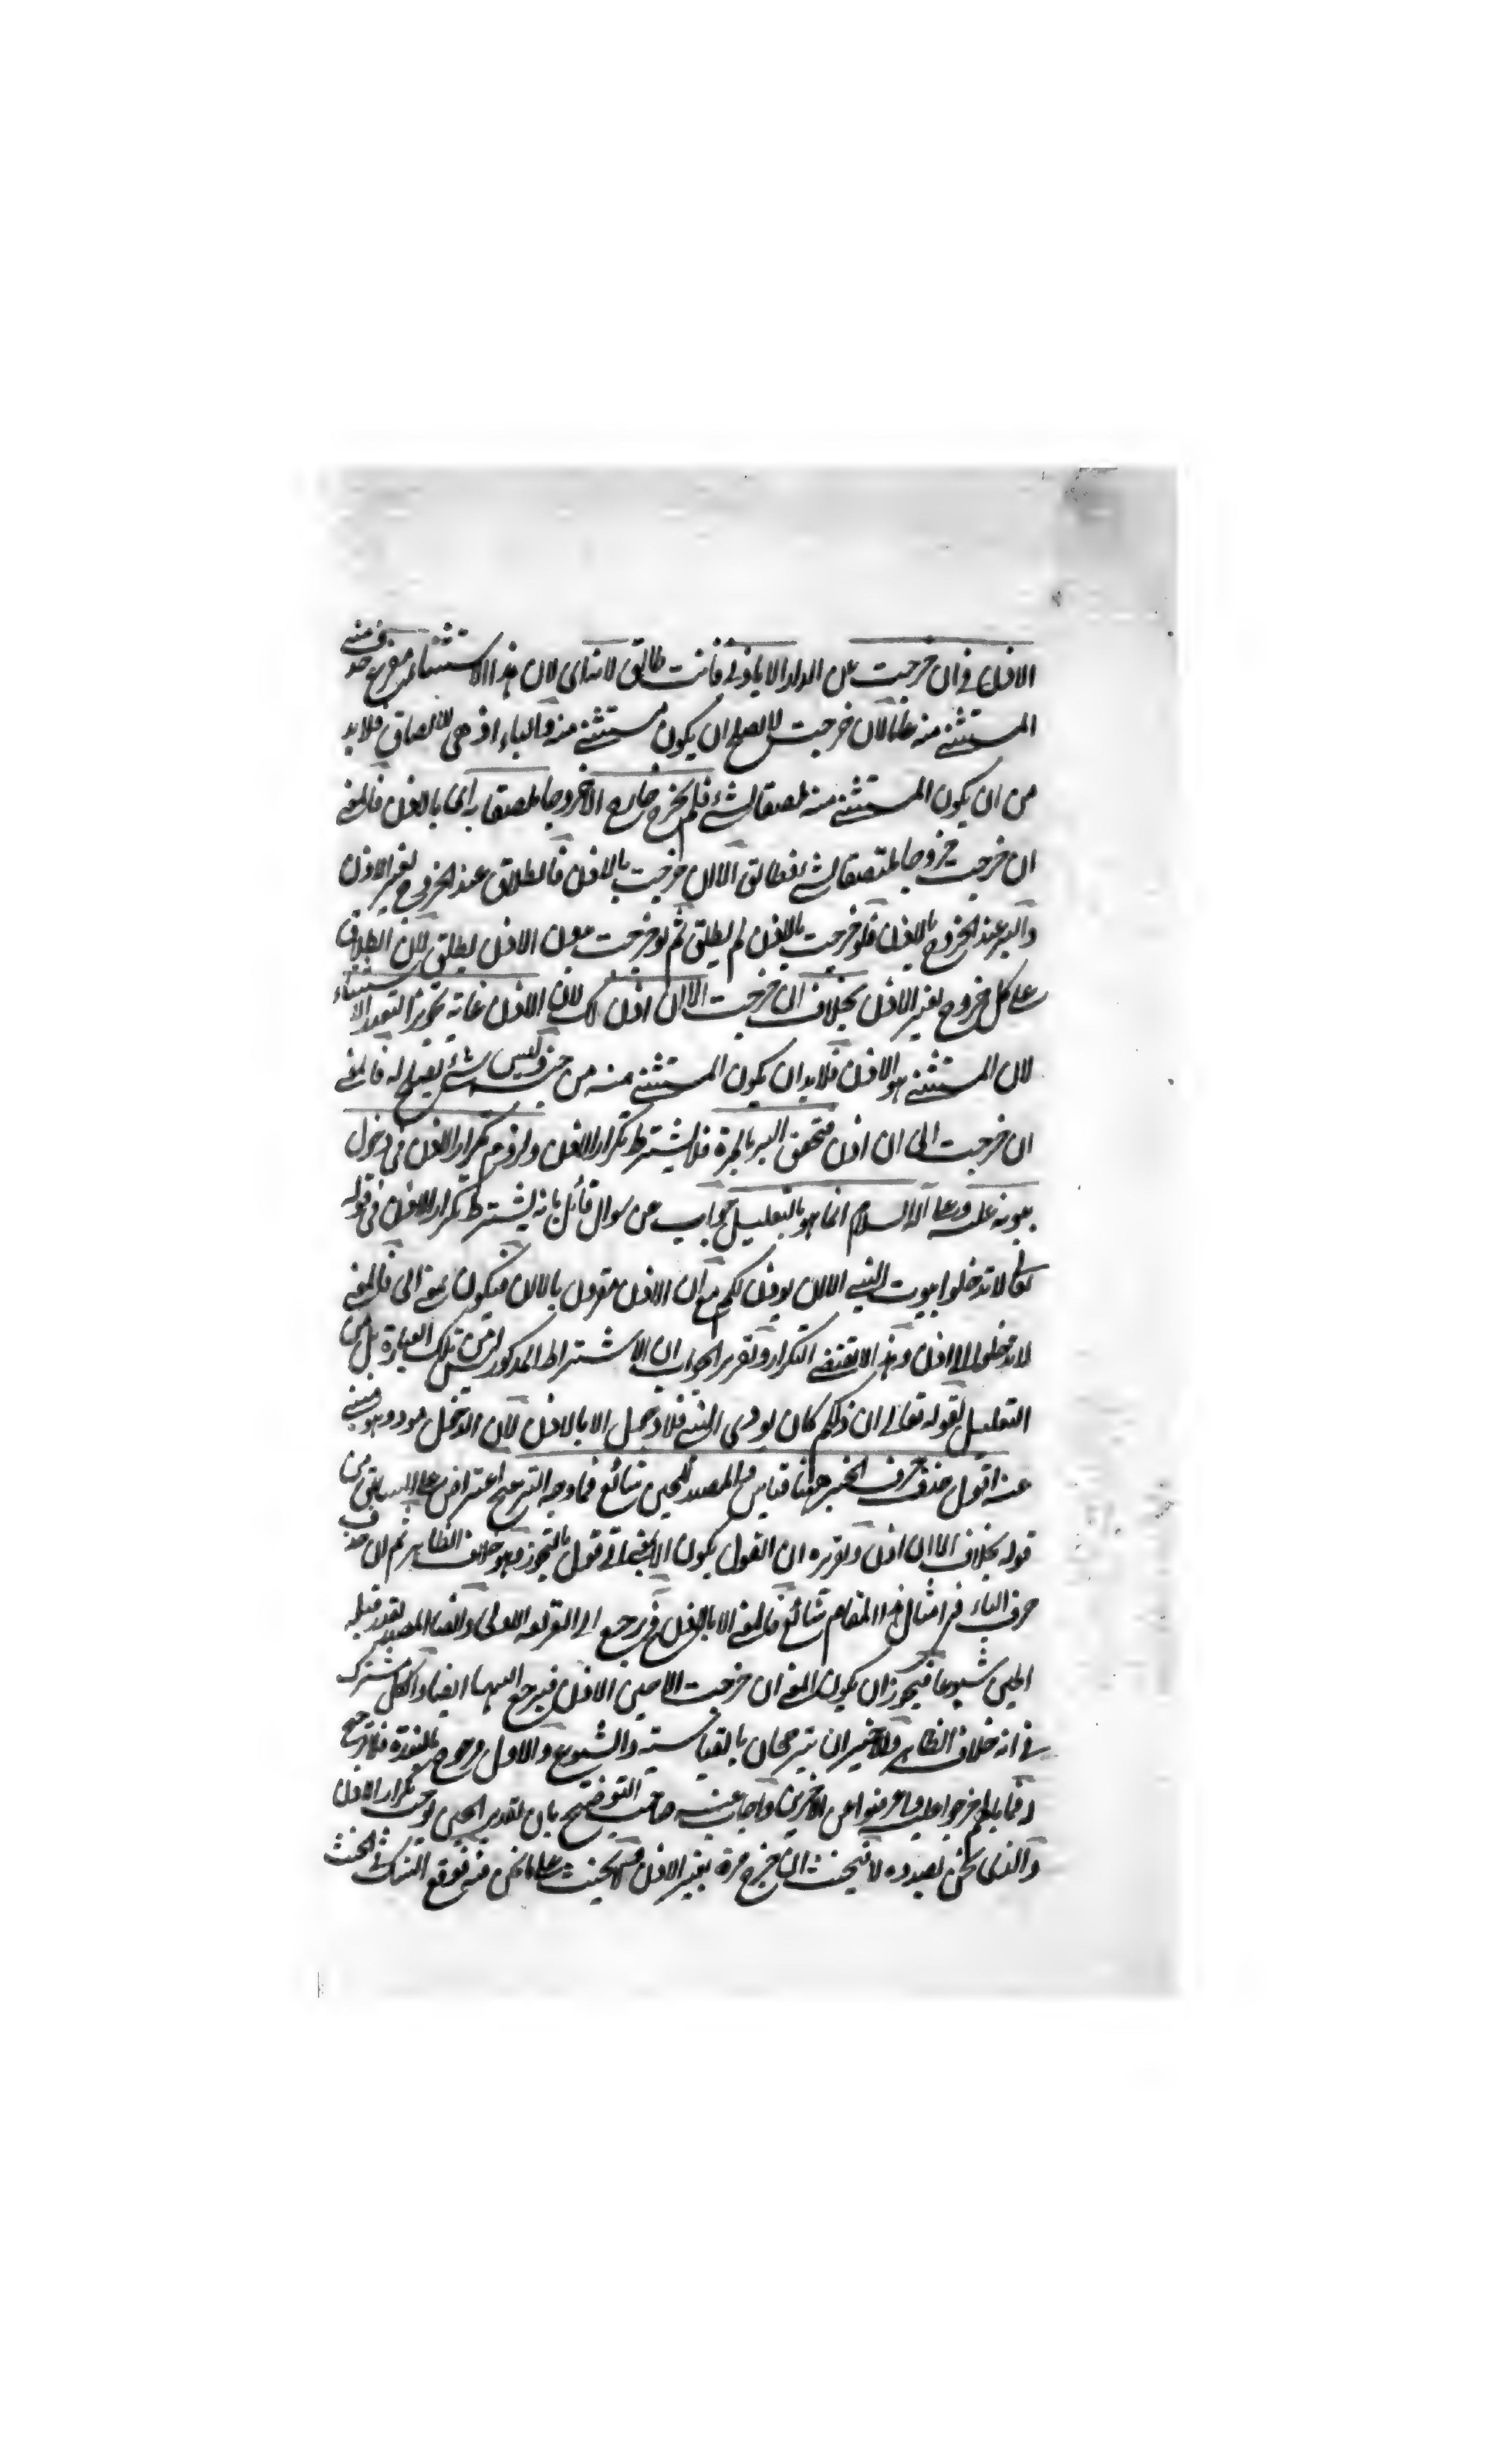 الاذن في ان خرجت من الدار الا باذني فانت طالق لانه اى لان هذا الاستثناء مفرغ حذف منه
المستثنى منه لان خرجت لا يصلح ان يكون مستثنى منه والباء اذ هى للالصاق فلا بد
من ان يكون المستثنى منه ملصقا بشئ فلم يخرج خارج الا خروجا ملصقا به اى بالاذن فالمعنى
ان خرجت خروجا ملتصقا بشئ فطالق الا ان خرجت بالاذن فالطلاق عند الخروج بغير الاذن
والبر عند الخروج بالاذن فلو خرجت بالاذن لم يطلق ثم لو خرجت بدون الاذن يطلق لان الطلاق
على كل خروج بغير الاذن بخلاف ان خرجت الا ان اذن لك لان الاذن غاية تعذر الاستثناء
لان المستثنى هو الاذن فلا بد ان يكون المستثنى منه من جنسه وليس شئ يصلح له فالمعنى
ان خرجت الى ان اذن فتحقق البر بالمرة فلا يشترط تكرار الاذن ولزوم تكرار الاذن في دخول
بيوته عليه وعلى اله السلام انما هو بالتعليل جواب عن سوال قائل بانه يشترط تكرار الاذن في قوله
تعالى لا تدخلوا بيوت النبي الا ان يوذن لكم مع ان الاذن مقرون بالا ان فيكون بمعنى الى فالمعنى
لا تدخلوا الى اذن وهذا لا يقتضي التكرار وتقرير الجواب ان الاشتراط المذكور ليس من تلك العبارة بل من
التعليل لقوله تعالى ان ذلكم كان يوذى النبي فلا دخل الا بالاذن لان الدخل موذ وهو منهى
عنه اقول حذف حرف الجر ههنا قياس والمصدر للحين شائع فما وجه الترجيح اعتراض على السابق من
قوله بخلاف الا ان اذن وتقريره ان القول بكون الا بمعنى الى قول بالتجوز وهو خلاف الظاهر ثم ان حذف
حرف الباء في امثال هذا المقام شائع فالمعنى الا بالاذن فيرجع الى القرينة الاولى وايضا المصدر يقدر قبله
الحين شيوعا فيجوز ان يكون المعنى ان خرجت الا حين الاذن فيرجع اليها ايضا والكل مشترك
في انه خلاف الظاهر والاخيران يترجحان بالقياسية والشيوع والاول مرجوح بالندرة فلا ترجيح
له فما بالهم اخرجوا عن الاخرين واجاب عنه صاحب التوضيح بان تقدير الحين يوجب تكرار الاذن
والذى نحن بصدده لا فيحنث ان خرج مرة بغير الاذن ولا يحنث على ما نحن فيه فوقع الشك في الحنث